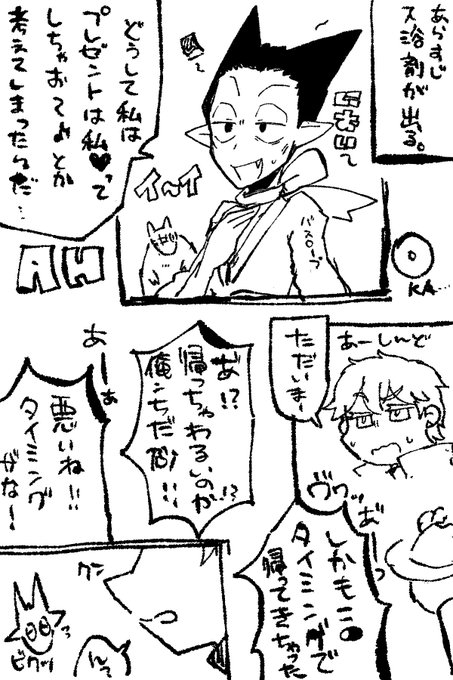 あらすじ
入浴剤が出る。
どうして私は
プレゼントは私♥って
しちゃおて♪とか
考えてしまったんだ…
イーイ
バスローブ
AHO
KA…
あーしんど
ただいまー
ヴワッ
あ゛ーっ
しかもこの
タイミングで
帰ってきちゃった
あ゛!?
帰っちゃわるいのか!?
俺ンちだが!!
あーぁ
悪いね!!
タイミング
がなー!
クン
んっ
ビクッ